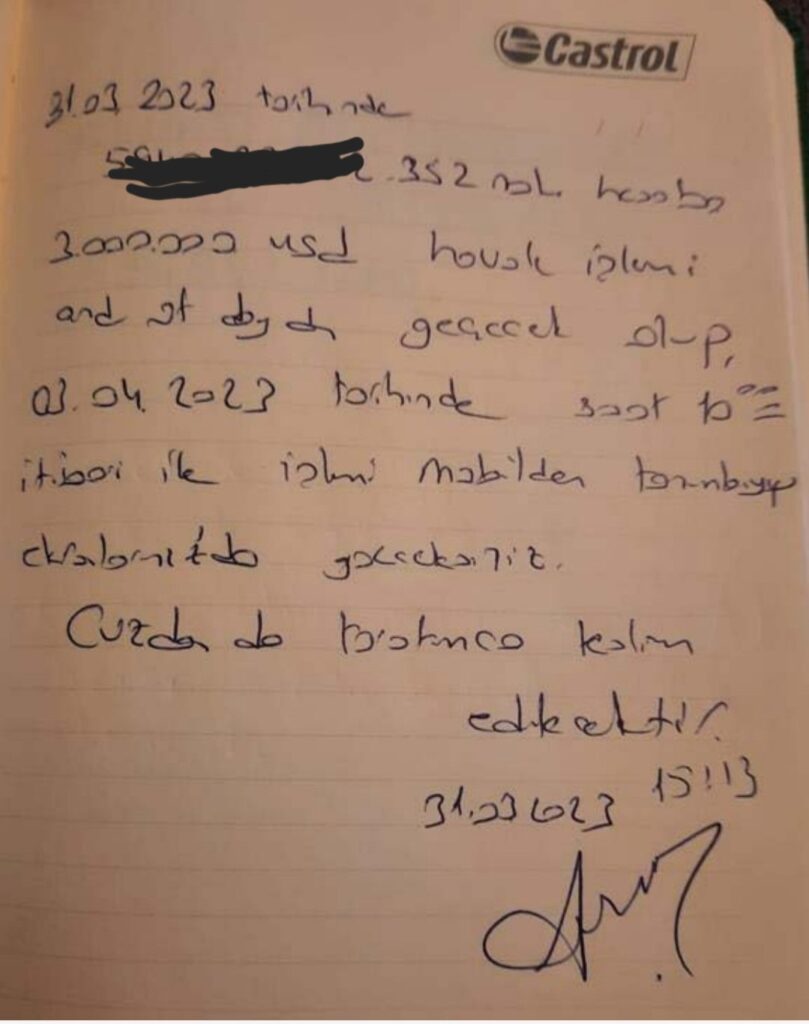 Castrol
31.03 2023 tarihinde
352 nolu hesaba
3.000.000 usd havale işlemi
and
geçecek olup,
03.04.2023 tarihinde saat 10:00
itibari ile işlemi mobilden tanımlayıp
ekranlarınızda göreceksiniz.
Cüzdan da tarafınıza teslim
edilecektir.
31.03 2023 15:13